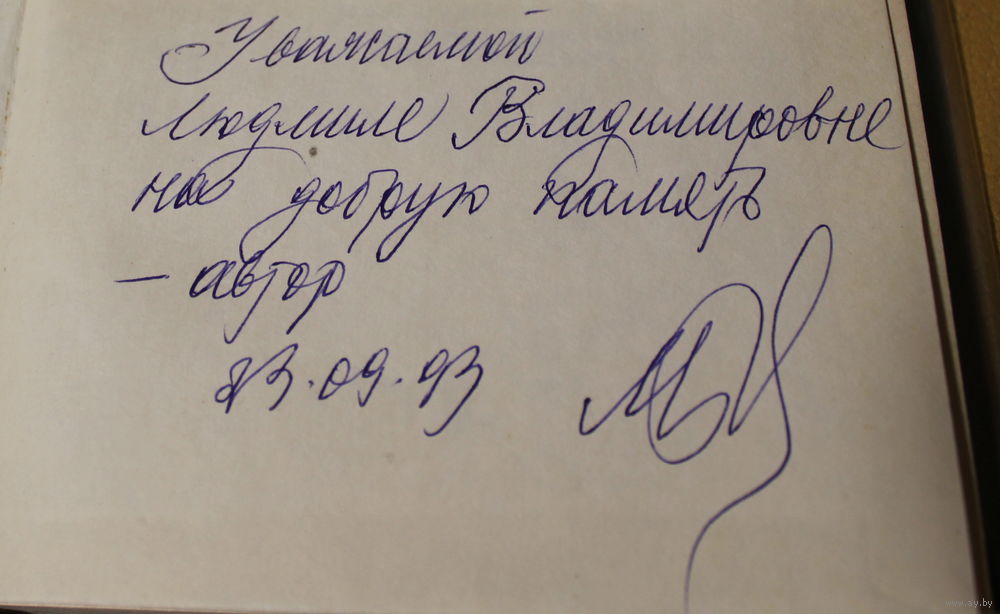 Уважаемой
Людмиле Владимировне
на добрую память
— автор
23.09.93
www.ay.by